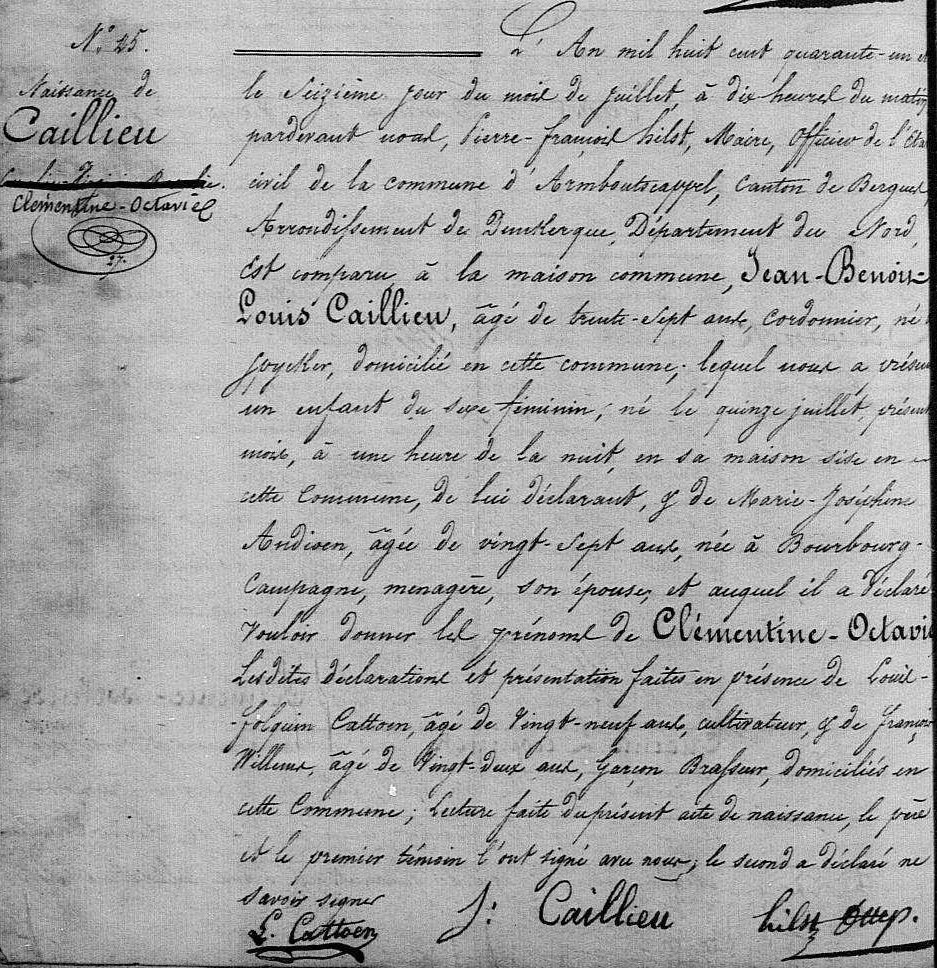 N.° 25.
Naissance de
Caillieu
Clémentine-Octavie
27.
L'An mil huit cent quarante-un et
le Seizième jour du mois de juillet, à dix heures du matin
pardevant nous, Pierre-françois hilst, Maire, Officier de l'Etat
civil de la commune d'Armboutscappel, Canton de Bergues,
Arrondissement de Dunkerque, Département du Nord,
Est comparu, à la maison commune, Jean-Benoit-
Louis Caillieu, âgé de trente-sept ans, cordonnier, né
Spycker, domicilié en cette commune; lequel nous a présen
un enfant du sexe féminin; né le quinze juillet, présent
mois, à une heure de la nuit, en sa maison sise en
cette Commune, de lui déclarant, & de Marie-Joséphine
Andioen, âgée de vingt-sept ans, née à Bourbourg-
Campagne, menagère, son épouse; et auquel il a déclaré
vouloir donner les prénoms de Clémentine-Octavie
Lesdites déclarations et présentation faites en présence de Louis-
-folquin Cattoen, âgé de Vingt-neuf ans, cultivateur, & de françois
Willems, âgé de Vingt-deux ans, Garçon Brasseur, domiciliés en
cette Commune; Lecture faite du présent acte de naissance, le père
et le premier témoin l'ont signé avec nous; le second a déclaré ne
savoir signer
L. Cattoen J: Caillieu hilst